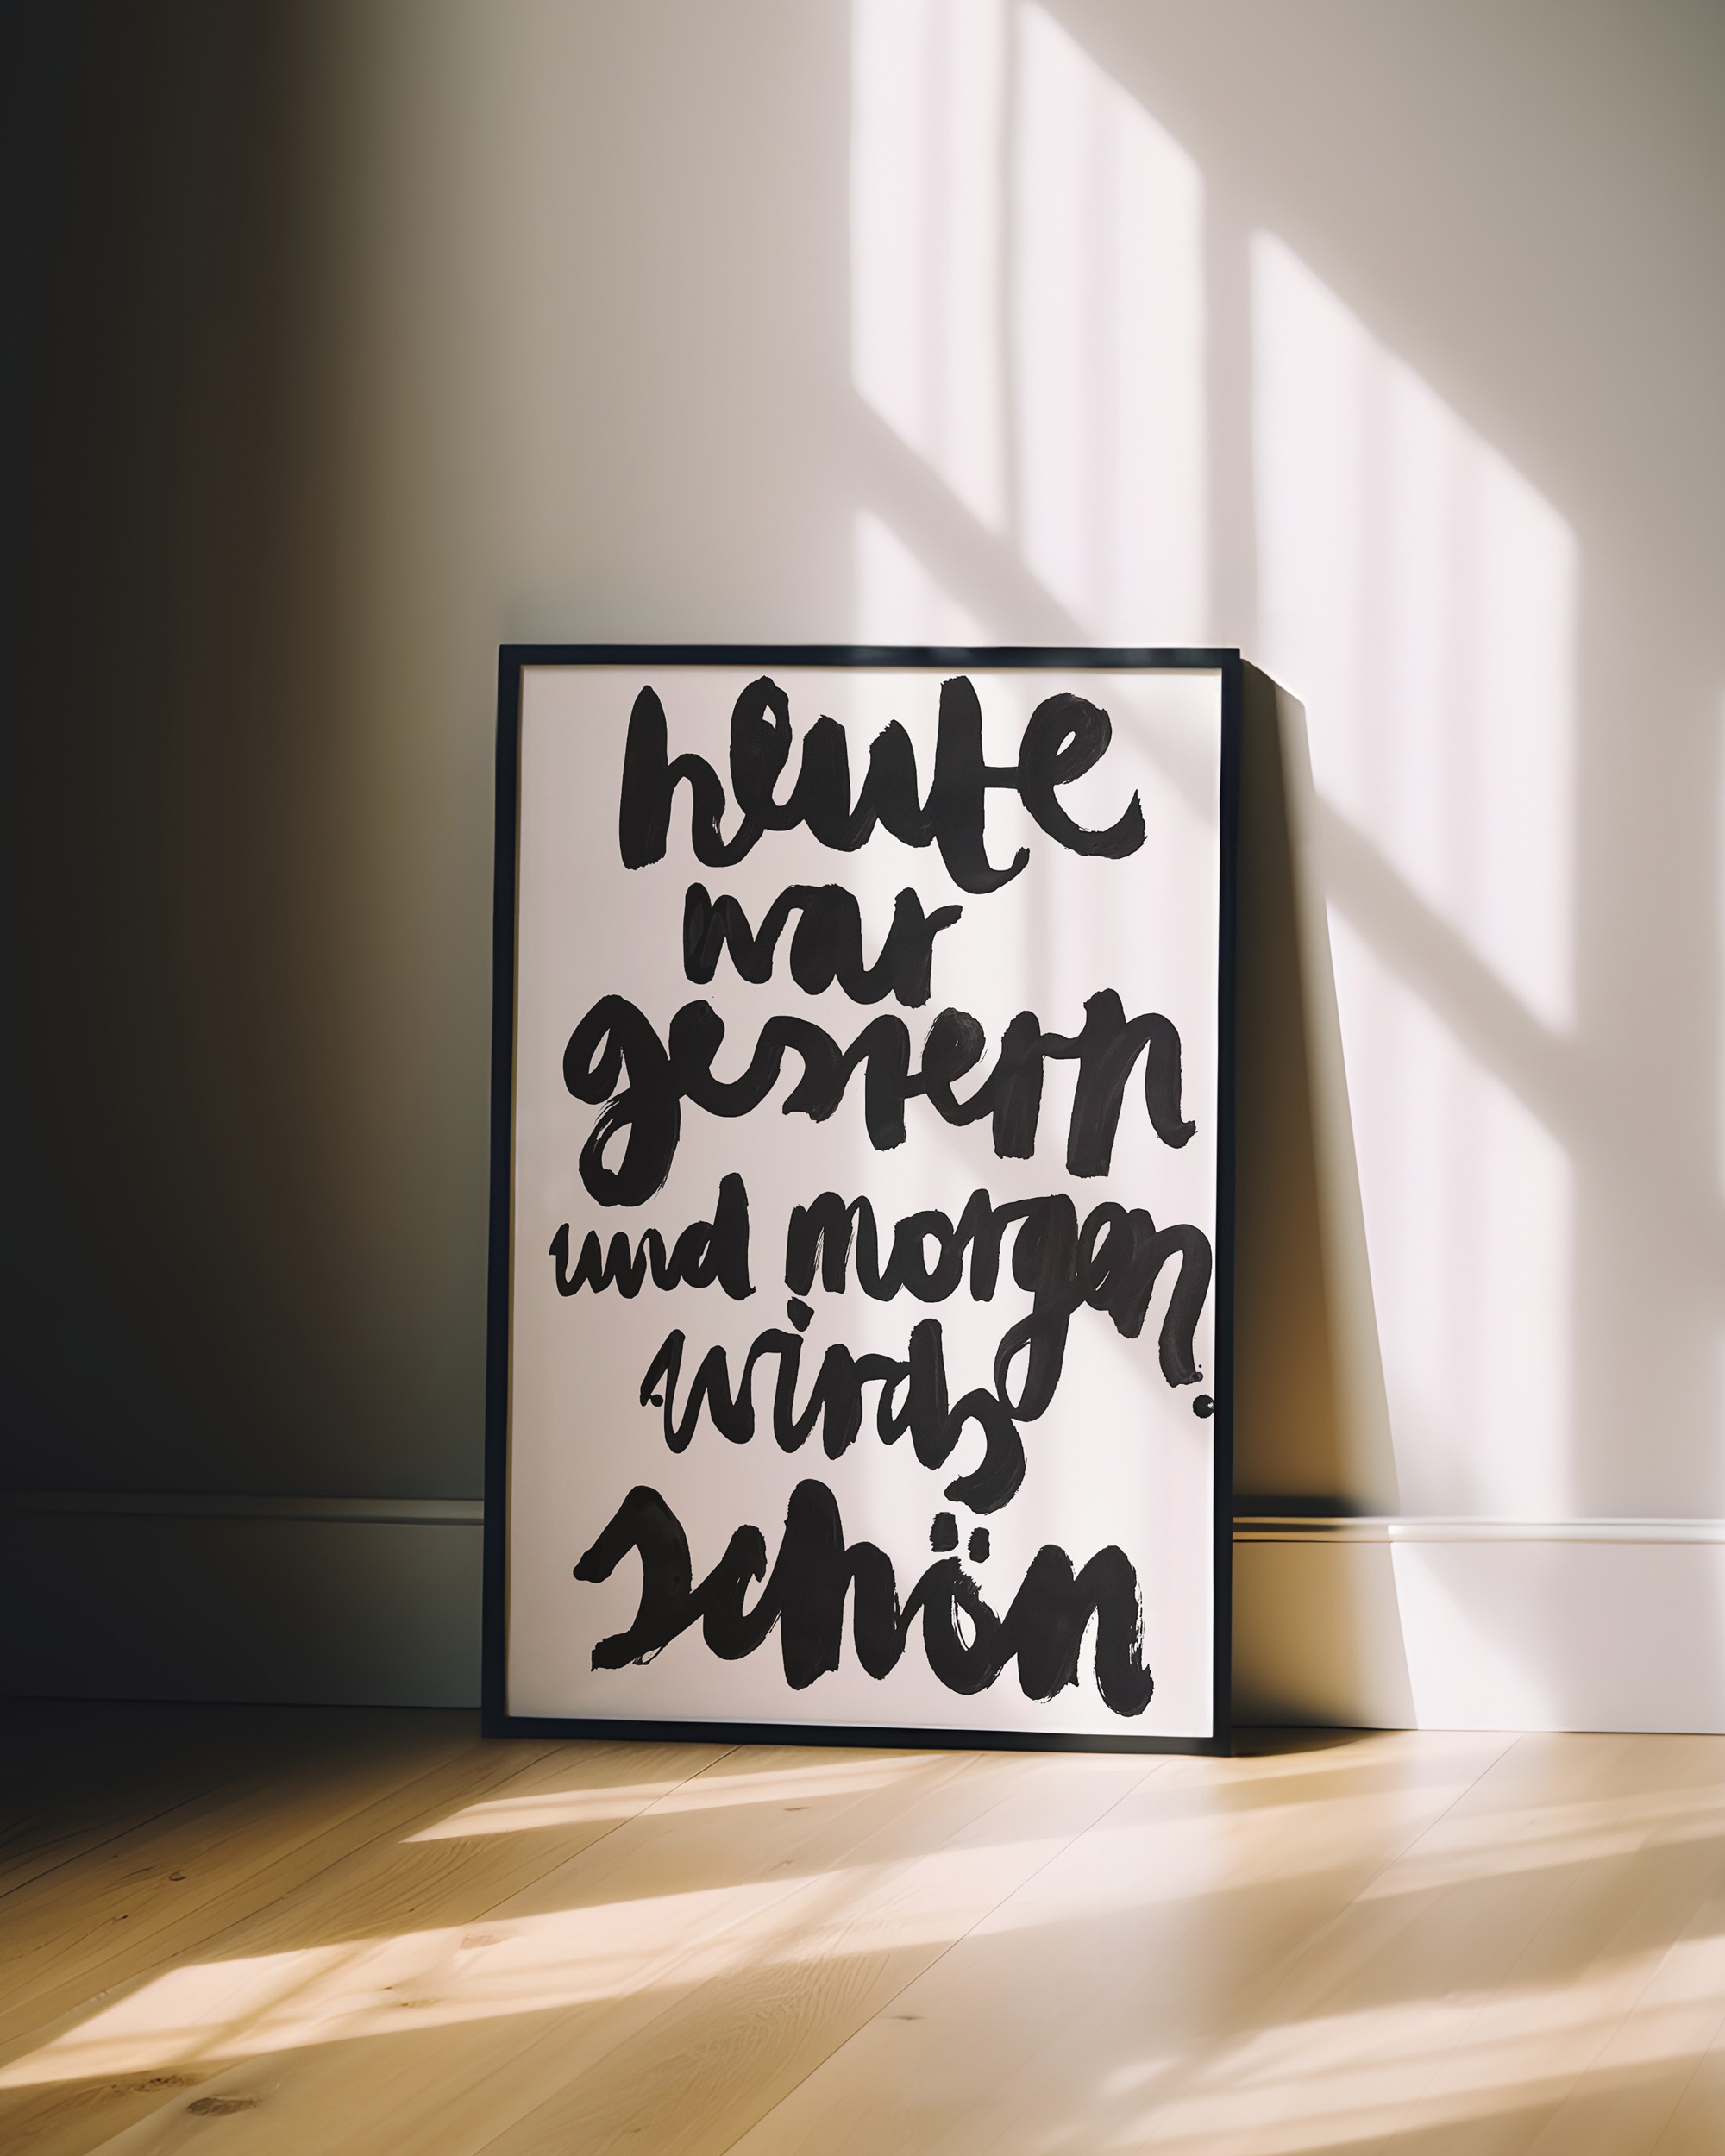 heute
war
gestern
und morgen
wirds
schön